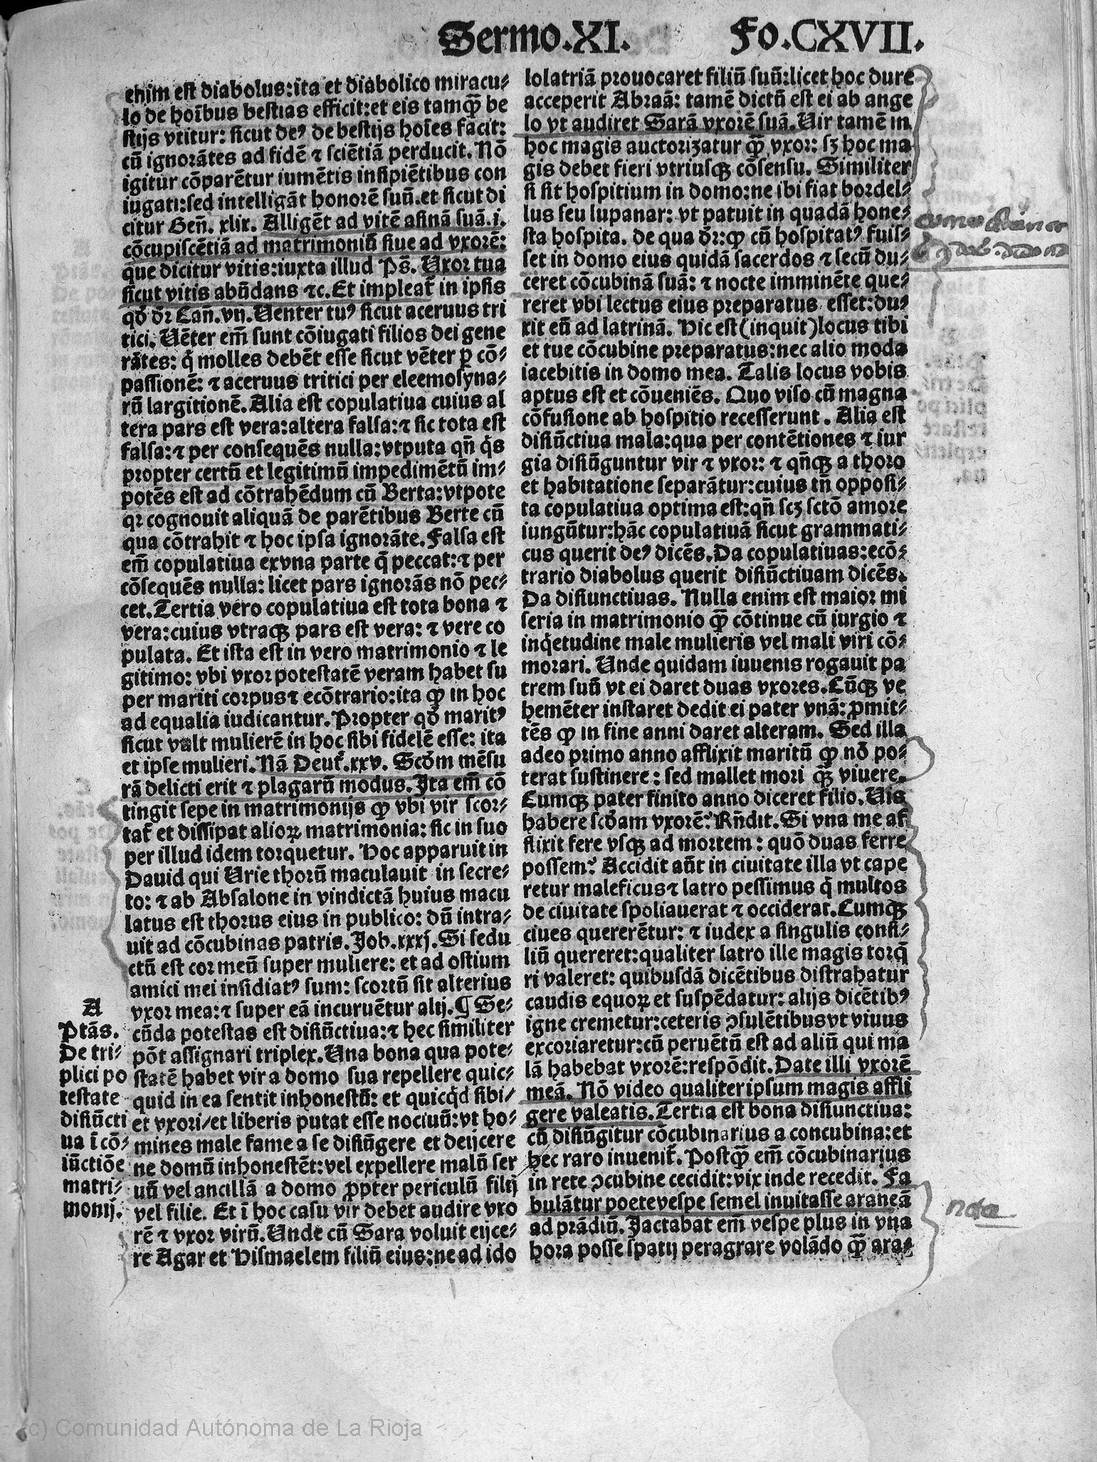 Sermo.XI. Fo.CXVII.
enim est diabolus:ita et diabolico miracu⸗
lo de hoībus bestias efficit:et eis tamq̄ be
stijs vtitur: sicut deꝰ de bestijs hoīes facit:
cū ignorātes ad fidē ⁊ sciētiā perducit. Nō
igitur cōparētur iumētis insipiētibus con
iugati:sed intelligāt honorē suū.et sicut di
citur Geñ. xlix. Alligēt ad vitē asinā suā.i.
cōcupiscētiā ad matrimoniū siue ad vxorē:
que dicitur vitis:iuxta illud Ps̄. Uxor tua
sicut vitis abūdans ⁊c.Et impleat̄ in ipsis
qd̄ dr̄ Cañ.vii.Uenter tuꝰ sicut aceruus tri
tici. Uēter em̄ sunt cōiugati filios dei gene
rātes: q̄ molles debēt esse sicut vēter ꝑ cō⸗
passionē: ⁊ aceruus tritici per eleemosyna⸗
rū largitionē. Alia est copulatiua cuius al
tera pars est vera:altera falsa:⁊ sic tota est
falsa:⁊ per consequēs nulla:vtputa qn̄ q̇s
propter certū et legitimū impedimētū im⸗
potēs est ad cōtrahēdum cū Berta:vtpote
qꝛ cognouit aliquā de parētibus Berte cū
qua cōtrahit ⁊ hoc ipsa ignorāte. Falsa est
em̄ copulatiua exvna parte q̄ peccat:⁊ per
cōsequēs nulla: licet pars ignorās nō pec⸗
cet. Tertia vero copulatiua est tota bona ⁊
vera:cuius vtraqꝫ pars est vera: ⁊ vere co
pulata. Et ista est in vero matrimonio ⁊ le
gitimo: vbi vxor potestatē veram habet su
per mariti corpus⁊ ecōtrario:ita ꝙ in hoc
ad equalia iudicantur. Propter qd̄ maritꝰ
sicut valt mulierē in hoc sibi fidelē esse: ita
et ipse mulieri. Nā Deut̄.xxv. Scd̄m mēsu
rā delicti erit ⁊ plagarū modus. Ita em̄ cō
tingit sepe in matrimonijs ꝙ vbi vir scor⸗
tat̄ et dissipat alioꝝ matrimonia: sic in suo
per illud idem torquetur. Hoc apparuit in
Dauid qui Urie thorū maculauit in secre⸗
to: ⁊ ab Absalone in vindictā huius macu
latus est thorus eius in publico: dū intra⸗
uit ad cōcubinas patris. Job.xxxj. Si sedu
ctū est cor meū super muliere: et ad ostium
amici mei insidiatꝰ sum: scortū sit alterius
vxor mea:⁊ super eā incuruētur alij. ¶ Se⸗
cūda potestas est disiūctiua:⁊ hec similiter
pōt assignari triplex. Una bona qua pote⸗
statē habet vir a domo sua repellere quic⸗
quid in ea sentit inhonestū: et quicq̇d sibi/
et vxori/et liberis putat esse nociuū:vt ho⸗
mines male fame a se disiūgere et deijcere
ne domū inhonestēt:vel expellere malū ser
uū vel ancillā a domo ꝓpter periculū filij
vel filie. Et ī hoc casu vir debet audire vxo
rē ⁊ vxor virū. Unde cū Sara voluit eijce⸗
re Agar et Hismaelem filiū eius:ne ad ido
A
Ptās.
De tri⸗
plici po
testate
disiūcti
ua ī cō⸗
iūctiōe
matri⸗
monij.
lolatriā prouocaret filiū suū:licet hoc dure
acceperit Abraā: tamē dictū est ei ab ange
lo vt audiret Sarā vxorē suā. Uir tamē in
hoc magis auctorizatur q̄ vxor: sꝫ hoc ma
gis debet fieri vtriusqꝫ cōsensu. Similiter
si sit hospitium in domo:ne ibi fiat bordel⸗
lus seu lupanar: vt patuit in quadā hone⸗
sta hospita. de qua dr̄:ꝙ cū hospitatꝰ fuis⸗
set in domo eius quidā sacerdos ⁊ secū du⸗
ceret cōcubinā suā: ⁊ nocte imminēte que⸗
reret vbi lectus eius preparatus esset:du⸗
xit eū ad latrinā. Hic est (inquit) locus tibi
et tue cōcubine preparatus:nec alio modo
iacebitis in domo mea. Talis locus vobis
aptus est et cōueniēs. Quo viso cū magna
cōfusione ab hospitio recesserunt. Alia est
disiūctiua mala:qua per contētiones ⁊ iur
gia disiūguntur vir ⁊ vxor: ⁊ qn̄qꝫ a thoro
et habitatione separātur:cuius tn̄ opposi⸗
ta copulatiua optima est:qn̄ scꝫ sctō amore
iungūtur:hāc copulatiuā sicut grammati⸗
cus querit deꝰ dicēs. Da copulatiuas:ecō⸗
trario diabolus querit disiūctiuam dicēs.
Da disiunctiuas. Nulla enim est maior mi
seria in matrimonio q̄ cōtinue cū iurgio ⁊
inq̇etudine male mulieris vel mali viri cō⸗
morari. Unde quidam iuuenis rogauit pa
trem suū vt ei daret duas vxores. Cūqꝫ ve
hemēter instaret dedit ei pater vnā: ꝓmit⸗
tēs ꝙ in fine anni daret alteram. Sed illa
adeo primo anno afflixit maritū ꝙ nō po⸗
terat sustinere: sed mallet mori q̄ viuere.
Cumqꝫ pater finito anno diceret filio. Uis
habere scd̄am vxorē? Rn̄dit. Si vna me af
flixit fere vsqꝫ ad mortem: quō duas ferre
possem? Accidit aūt in ciuitate illa vt cape
retur maleficus⁊ latro pessimus q̄ multos
de ciuitate spoliauerat ⁊ occiderat. Cumqꝫ
ciues quererētur: ⁊ iudex a singulis consi⸗
liū quereret:qualiter latro ille magis torq̄
ri valeret: quibusdā dicētibus distrahatur
caudis equoꝝ et suspēdatur: alijs dicētibꝰ
igne cremetur:ceteris ↄsulētibusvt viuus
excoriaretur:cū peruētū est ad aliū qui ma
lā habebat vxorē:respōdit. Date illi vxorē
meā. Nō video qualiter ipsum magis affli
gere valeatis. Tertia est bona disiunctiua:
cū disiūgitur cōcubinarius a concubina:et
hec raro inuenit̄. Postq̄ em̄ cōcubinarius
in rete ↄcubine cecidit:vix inde recedit. Fa
bulātur poete vespe semel inuitasse araneā
ad prādiū. Jactabat em̄ vespe plus in vna
hora posse spatij peragrare volādo q̄ ara⸗
nota
(c) Comunidad Autónoma de La Rioja